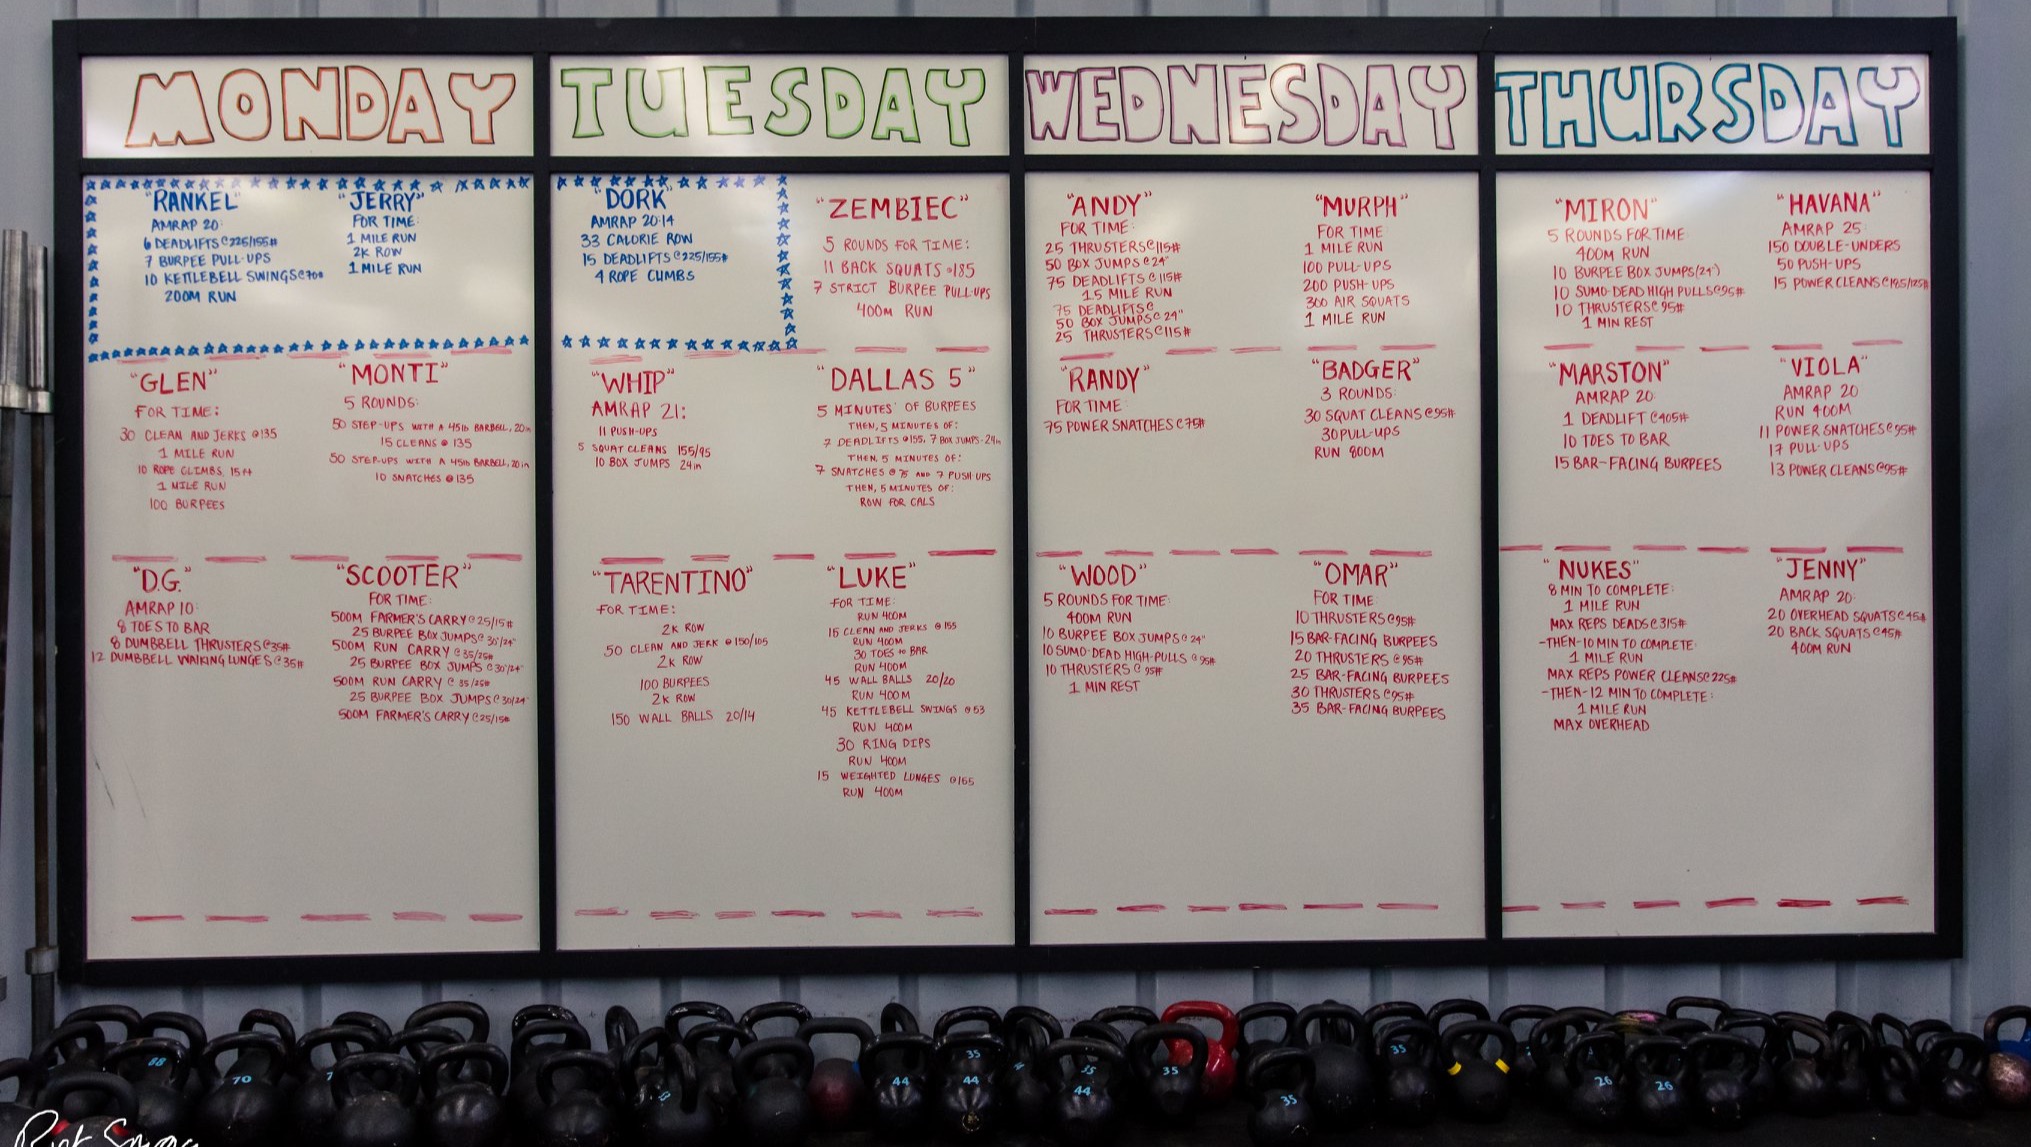 MONDAY
"RANKEL"
AMRAP 20:
6 DEADLIFTS @225/155#
7 BURPEE PULL-UPS
10 KETTLEBELL SWINGS @70#
200M RUN
"JERRY"
FOR TIME:
1 MILE RUN
2K ROW
1 MILE RUN
"GLEN"
FOR TIME:
30 CLEAN AND JERKS @135
1 MILE RUN
10 ROPE CLIMBS, 15ft
1 MILE RUN
100 BURPEES
"MONTI"
5 ROUNDS:
50 STEP-UPS WITH A 45lb BARBELL, 20in
15 CLEANS @ 135
50 STEP-UPS WITH A 45lb BARBELL, 20in
10 SNATCHES @ 135
"D.G."
AMRAP 10:
8 TOES TO BAR
8 DUMBBELL THRUSTERS @35#
12 DUMBBELL WALKING LUNGES @35#
"SCOOTER"
FOR TIME:
500M FARMER'S CARRY @25/15#
25 BURPEE BOX JUMPS @30/24"
500M RUN CARRY @35/25#
25 BURPEE BOX JUMPS @30/24"
500M RUN CARRY @35/25#
25 BURPEE BOX JUMPS @30/24"
500M FARMER'S CARRY @25/15#
TUESDAY
"DORK"
AMRAP 20:14
33 CALORIE ROW
15 DEADLIFTS @225/155#
4 ROPE CLIMBS
"ZEMBIEC"
5 ROUNDS FOR TIME:
11 BACK SQUATS @185
7 STRICT BURPEE PULL-UPS
400M RUN
"WHIP"
AMRAP 21:
11 PUSH-UPS
5 SQUAT CLEANS 155/95
10 BOX JUMPS 24in
"DALLAS 5"
5 MINUTES OF BURPEES
THEN, 5 MINUTES OF:
7 DEADLIFTS @155, 7 BOX JUMPS-24in
THEN, 5 MINUTES OF:
7 SNATCHES @ 75 AND 7 PUSH-UPS
THEN, 5 MINUTES OF:
ROW FOR CALS
"TARENTINO"
FOR TIME:
2K ROW
50 CLEAN AND JERK @150/105
2K ROW
100 BURPEES
2K ROW
150 WALL BALLS 20/14
"LUKE"
FOR TIME:
RUN 400M
15 CLEAN AND JERKS @ 155
RUN 400M
30 TOES to BAR
RUN 400M
45 WALL BALLS 20/20
RUN 400M
45 KETTLEBELL SWINGS @53
RUN 400M
30 RING DIPS
RUN 400M
15 WEIGHTED LUNGES @155
RUN 400M
WEDNESDAY
"ANDY"
FOR TIME:
25 THRUSTERS @115#
50 BOX JUMPS @24"
75 DEADLIFTS @115#
1.5 MILE RUN
75 DEADLIFTS @
50 BOX JUMPS @24"
25 THRUSTERS @115#
"MURPH"
FOR TIME
1 MILE RUN
100 PULL-UPS
200 PUSH-UPS
300 AIR SQUATS
1 MILE RUN
"RANDY"
FOR TIME
75 POWER SNATCHES @75#
"BADGER"
3 ROUNDS:
30 SQUAT CLEANS @95#
30 PULL-UPS
RUN 800M
"WOOD"
5 ROUNDS FOR TIME:
400M RUN
10 BURPEE BOX JUMPS @ 24"
10 SUMO-DEAD HIGH-PULLS @95#
10 THRUSTERS @ 95#
1 MIN REST
"OMAR"
FOR TIME:
10 THRUSTERS @95#
15 BAR-FACING BURPEES
20 THRUSTERS @95#
25 BAR-FACING BURPEES
30 THRUSTERS @95#
35 BAR-FACING BURPEES
THURSDAY
"MIRON"
5 ROUNDS FOR TIME
400M RUN
10 BURPEE BOX JUMPS (24")
10 SUMO-DEAD HIGH PULLS @95#
10 THRUSTERS @ 95#
1 MIN REST
"HAVANA"
AMRAP 25:
150 DOUBLE-UNDERS
50 PUSH-UPS
15 POWER CLEANS
"MARSTON"
AMRAP 20:
1 DEADLIFT @405#
10 TOES TO BAR
15 BAR-FACING BURPEES
"VIOLA"
AMRAP 20
RUN 400M
11 POWER SNATCHES @95#
17 PULL-UPS
13 POWER CLEANS @95#
"NUKES"
8 MIN TO COMPLETE:
1 MILE RUN
MAX REPS DEADS @315#
-THEN-10 MIN TO COMPLETE:
1 MILE RUN
MAX REPS POWER CLEANS @225#
-THEN-12 MIN TO COMPLETE:
1 MILE RUN
MAX OVERHEAD
"JENNY"
AMRAP 20:
20 OVERHEAD SQUATS @45#
20 BACK SQUATS @45#
400M RUN
88
70
44
35
44
35
44
35
35
35
26
26